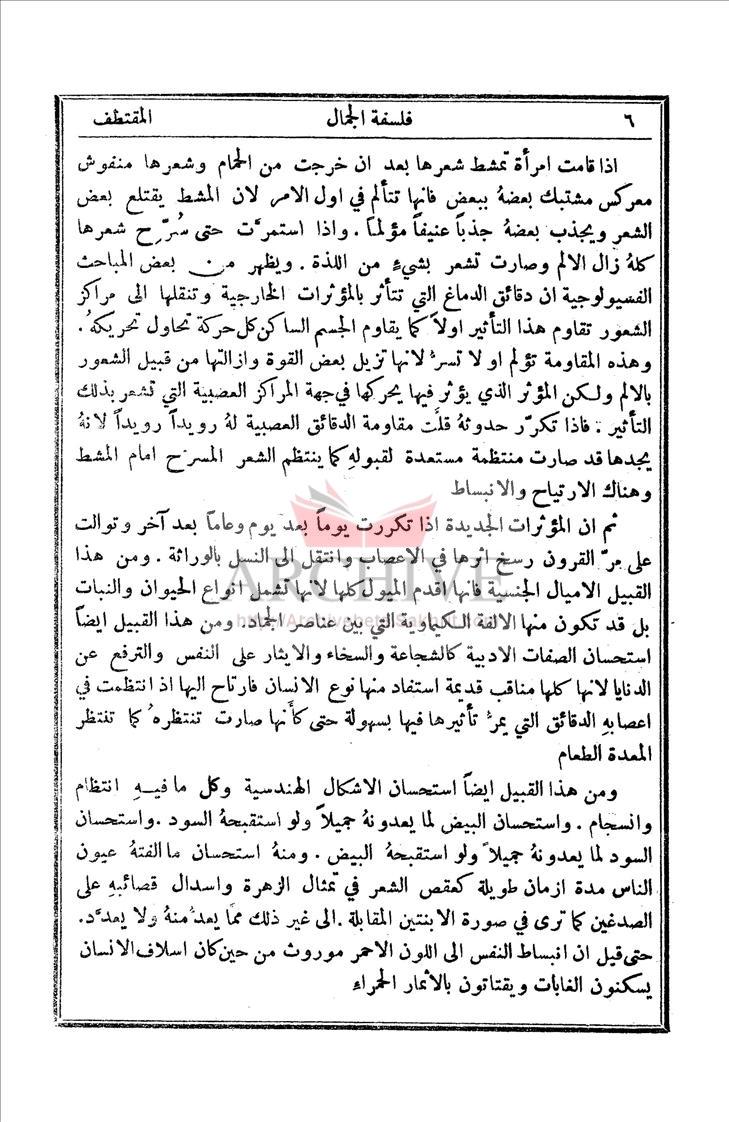 ٦ فلسفة الجمال المقتطف
اذا قامت امرأة تمشط شعرها بعد ان خرجت من الحمام وشعرها منفوش
معركس مشتبك بعضهُ ببعض فانها تتألم في اول الامر لان المشط يقتلع بعض
الشعر ويجذب بعضهُ جذباً عنيفاً مؤلماً . واذا استمرَّت حتى سُرّح شعرها
كلهُ زال الالم وصارت تشعر بشيءٍ من اللذة . ويظهر من بعض المباحث
الفسيولوجية ان دقائق الدماغ التي تتأثر بالمؤثرات الخارجية وتنقلها الى مراكز
الشعور تقاوم هذا التأثير اولاً كما يقاوم الجسم الساكن كل حركة تحاول تحريكهُ .
وهذه المقاومة تؤلم او لا تسرُّ لانها تزيل بعض القوة وازالتها من قبيل الشعور
بالالم ولكن المؤثر الذي يؤثر فيها يحركها في جهة المراكز العصبية التي تشعر بذلك
التأثير . فاذا تكرّر حدوثهُ قلَّت مقاومة الدقائق العصبية لهُ رويداً رويداً لانهُ
يجدها قد صارت منتظمة مستعدة لقبولهِ كما ينتظم الشعر المسرَّح امام المشط
وهناك الارتياح والانبساط
ثم ان المؤثرات الجديدة اذا تكررت يوماً بعد يوم وعاماً بعد آخر وتوالت
على مرّ القرون رسخ اثرها في الاعصاب وانتقل الى النسل بالوراثة . ومن هذا
القبيل الاميال الجنسية فانها اقدم الميول كلها لانها تشمل انواع الحيوان والنبات
بل قد تكون منها الالفة الكيماوية التي بين عناصر الجماد . ومن هذا القبيل ايضاً
استحسان الصفات الادبية كالشجاعة والسخاء والايثار على النفس والترفع عن
الدنايا لانها كلها مناقب قديمة استفاد منها نوع الانسان فارتاح اليها اذ انتظمت في
اعصابهِ الدقائق التي يمرُّ تأثيرها فيها بسهولة حتى كأنها صارت تنتظرهُ كما تنتظر
المعدة الطعام
ومن هذا القبيل ايضاً استحسان الاشكال الهندسية وكل ما فيهِ انتظام
وانسجام . واستحسان البيض لما يعدونهُ جميلاً ولو استقبحهُ السود . واستحسان
السود لما يعدونهُ جميلاً ولو استقبحهُ البيض . ومنهُ استحسان ما الفتهُ عيون
الناس مدة ازمان طويلة كعقص الشعر في تمثال الزهرة واسدال قصائبهِ على
الصدغين كما ترى في صورة الابنتين المقابلة . الى غير ذلك مما يعدُّ منهُ ولا يعدَّد .
حتى قيل ان انبساط النفس الى اللون الاحمر موروث من حين كان اسلاف الانسان
يسكنون الغابات ويقتاتون بالاثمار الحمراءِ
ARCHIVE
http://Archivebeta.Sakhrit.com